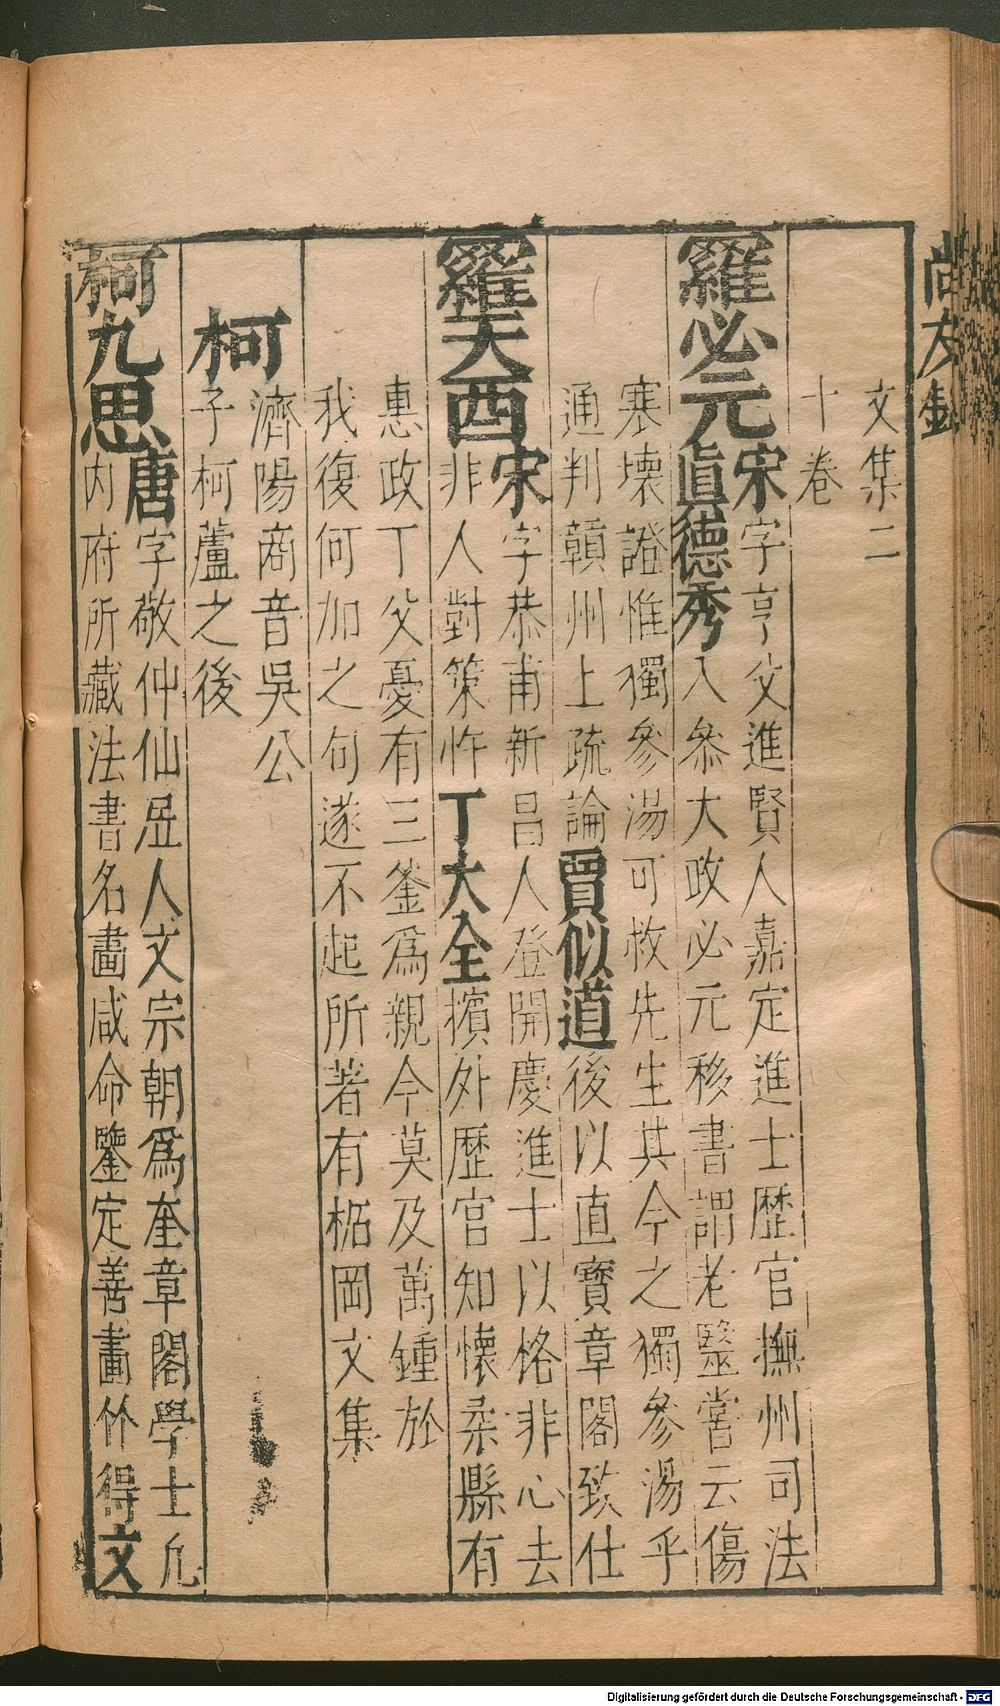 尚友錄
文集二
十卷
羅必元宋字亨父進賢人嘉定進士歷官撫州司法
眞德秀入叅大政必元移書謂老醫嘗云傷
寒壞證惟獨參湯可救先生其今之獨參湯乎
通判贑州上疏論賈似道後以直寶章閣致仕
羅天酉宋字恭甫新昌人登開慶進士以格非心去
非人對策忤丁大全擯外歷官知懷柔縣有
惠政丁父憂有三釜爲親今莫及萬鍾於
我復何加之句遂不起所著有梧岡文集
柯
濟陽商音吳公
子柯蘆之後
柯九思唐字敬仲仙居人文宗朝爲奎章閣學士凡
內府所藏法書名畫咸命鑒定善畫竹得文
Digitalisierung gefördert durch die Deutsche Forschungsgemeinschaft - DFG